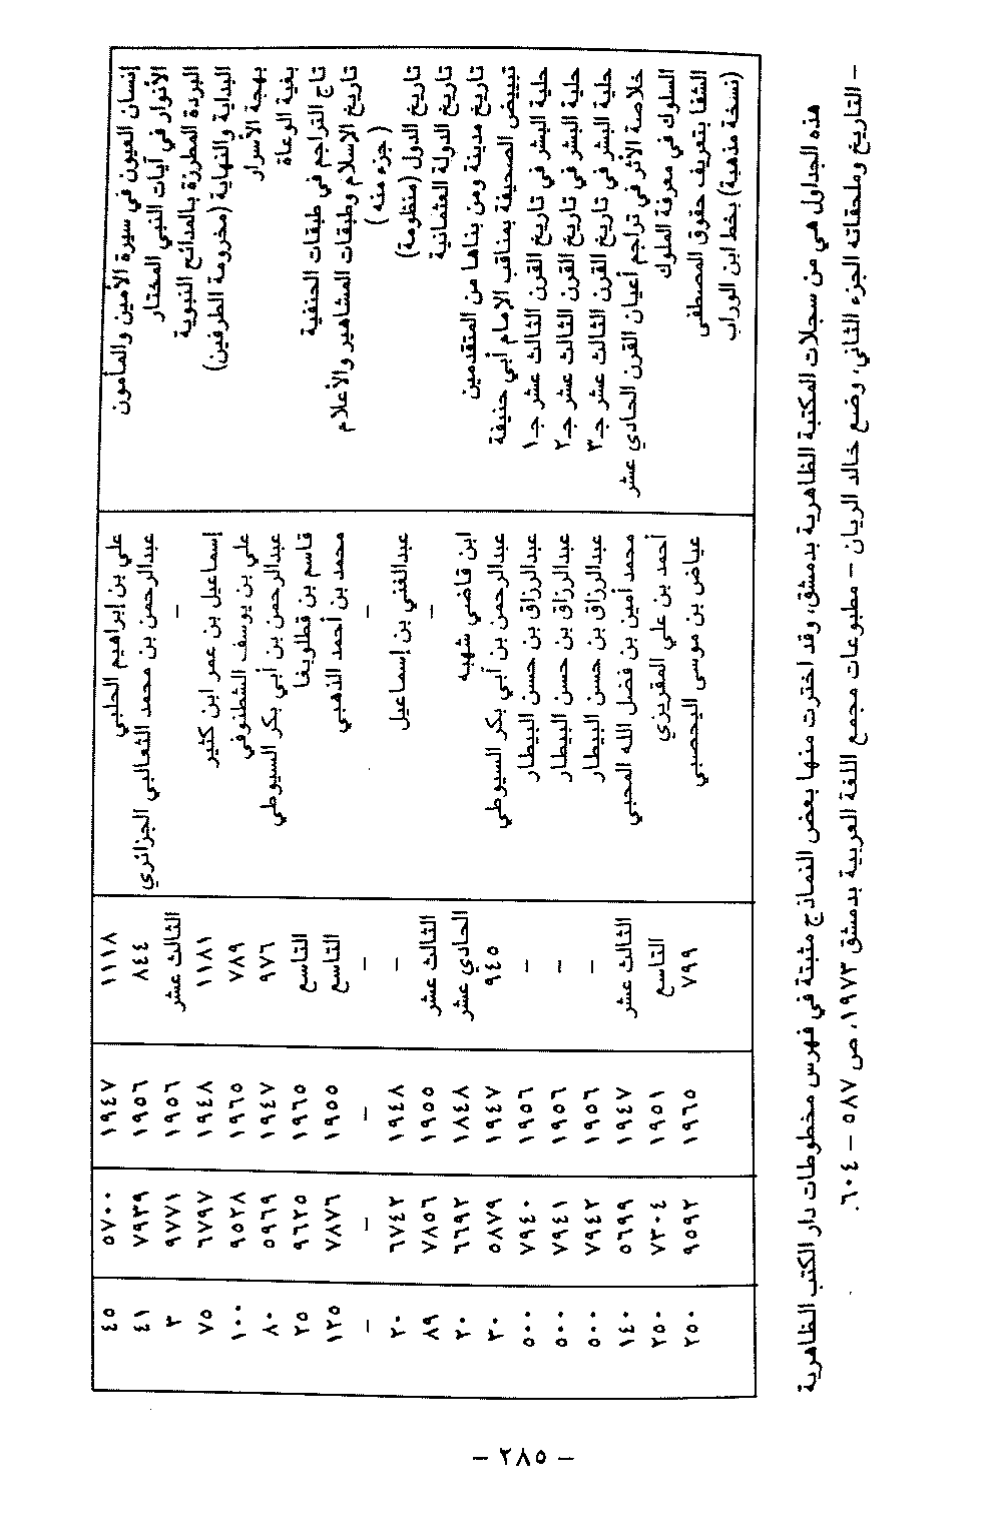 إنسان العيون في سيرة الأمين والمأمون علي بن إبراهيم الحلبي ١١١٨ ١٩٤٧ ٥٧٠٠ ٤٥
الأنوار في آيات النبي المختار عبدالرحمن بن محمد الثعالبي الجزائري ٨٤٤ ١٩٥٦ ٧٩٣٩ ٤١
البردة المطرزة بالمدائح النبوية – الثالث عشر ١٩٥٦ ٩٧٧١ ٣
البداية والنهاية (مخرومة الطرفين) إسماعيل بن عمر ابن كثير ١١٨١ ١٩٤٨ ٦٧٩٧ ٧٥
بهجة الأسرار علي بن يوسف الشطنوفي ٧٨٩ ١٩٦٥ ٩٥٢٨ ١٠٠
بغية الوعاة عبدالرحمن بن أبي بكر السيوطي ٩٧٦ ١٩٤٧ ٥٩٦٩ ٨٠
تاج التراجم في طبقات الحنفية قاسم بن قطلوبغا التاسع ١٩٦٥ ٩٦٢٥ ٢٥
تاريخ الإسلام وطبقات المشاهير والأعلام محمد بن أحمد الذهبي التاسع ١٩٥٥ ٧٨٧٦ ١٢٥
(جزء منه) – – – – –
تاريخ الدول (منظومة) عبدالغني بن إسماعيل – ١٩٤٨ ٦٧٤٢ ٢٠
تاريخ الدولة العثمانية – الثالث عشر ١٩٥٥ ٧٨٥٦ ٨٩
تاريخ مدينة ومن بناها من المتقدمين ابن قاضي شهبه الحادي عشر ١٨٤٨ ٦٦٩٢ ٢٠
تبييض الصحيفة بمناقب الإمام أبي حنيفة عبدالرحمن بن أبي بكر السيوطي ٩٤٥ ١٩٤٧ ٥٨٧٩ ٣٠
حلية البشر في تاريخ القرن الثالث عشر جـ١ عبدالرزاق بن حسن البيطار – ١٩٥٦ ٧٩٤٠ ٥٠٠
حلية البشر في تاريخ القرن الثالث عشر جـ٢ عبدالرزاق بن حسن البيطار – ١٩٥٦ ٧٩٤١ ٥٠٠
حلية البشر في تاريخ القرن الثالث عشر جـ٣ عبدالرزاق بن حسن البيطار – ١٩٥٦ ٧٩٤٢ ٥٠٠
خلاصة الأثر في تراجم أعيان القرن الحادي عشر محمد أمين بن فضل الله المحبي الثالث عشر ١٩٤٧ ٥٦٩٩ ١٤٠
السلوك في معرفة الملوك أحمد بن علي المقريزي التاسع ١٩٥١ ٧٣٠٤ ٢٥٠
الشفا بتعريف حقوق المصطفى عياض بن موسى اليحصبي ٧٩٩ ١٩٦٥ ٩٥٩٢ ٢٥٠
(نسخة مذهبة) بخط ابن الوراب
هذه الجداول هي من سجلات المكتبة الظاهرية بدمشق، وقد اخترت منها بعض النماذج مثبتة في فهرس مخطوطات دار الكتب الظاهرية
– التاريخ وملحقاته الجزء الثاني، وضع خالد الريان – مطبوعات مجمع اللغة العربية بدمشق ١٩٧٣، ص ٥٨٧ – ٦٠٤.
– ٢٨٥ –